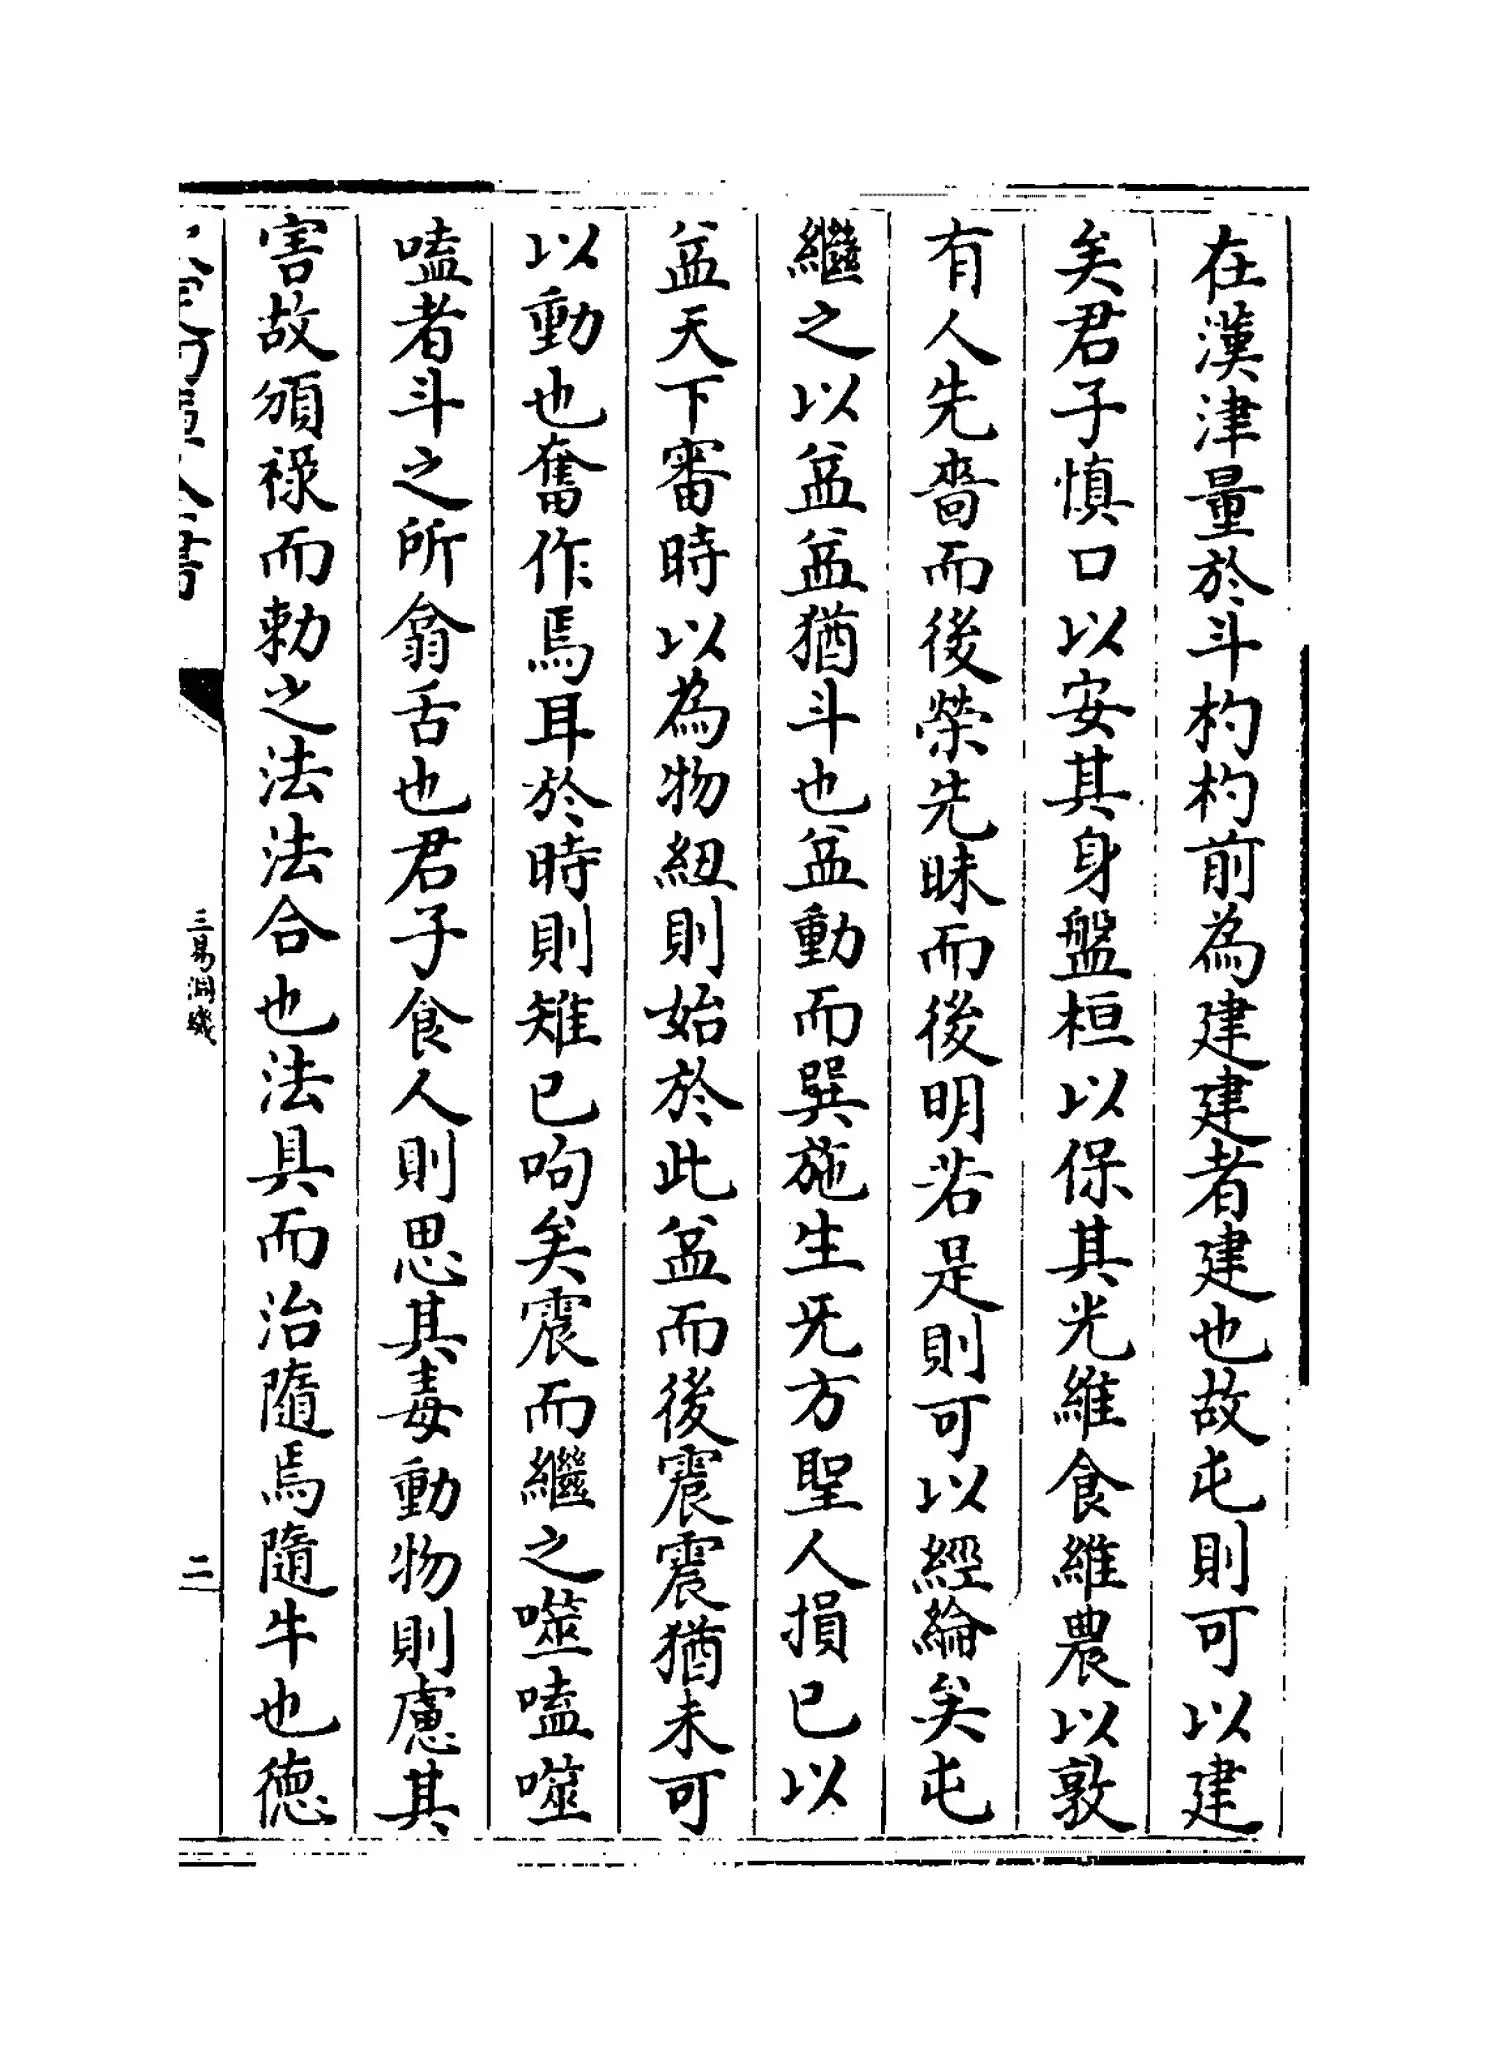 在漢津量於斗杓杓前為建建者建也故屯則可以建
矣君子慎口以安其身盤桓以保其光維食維農以敦
有人先嗇而後榮先昧而後明若是則可以經綸矣屯
繼之以益益猶斗也益動而巽施生旡方聖人損已以
益天下審時以為物紐則始於此益而後震震猶未可
以動也奮作焉耳於時則雉已呴矣震而繼之噬嗑噬
嗑者斗之所翕舌也君子食人則思其毒動物則慮其
害故頒祿而勅之法法合也法具而治隨焉隨牛也德
三易洞璣
二